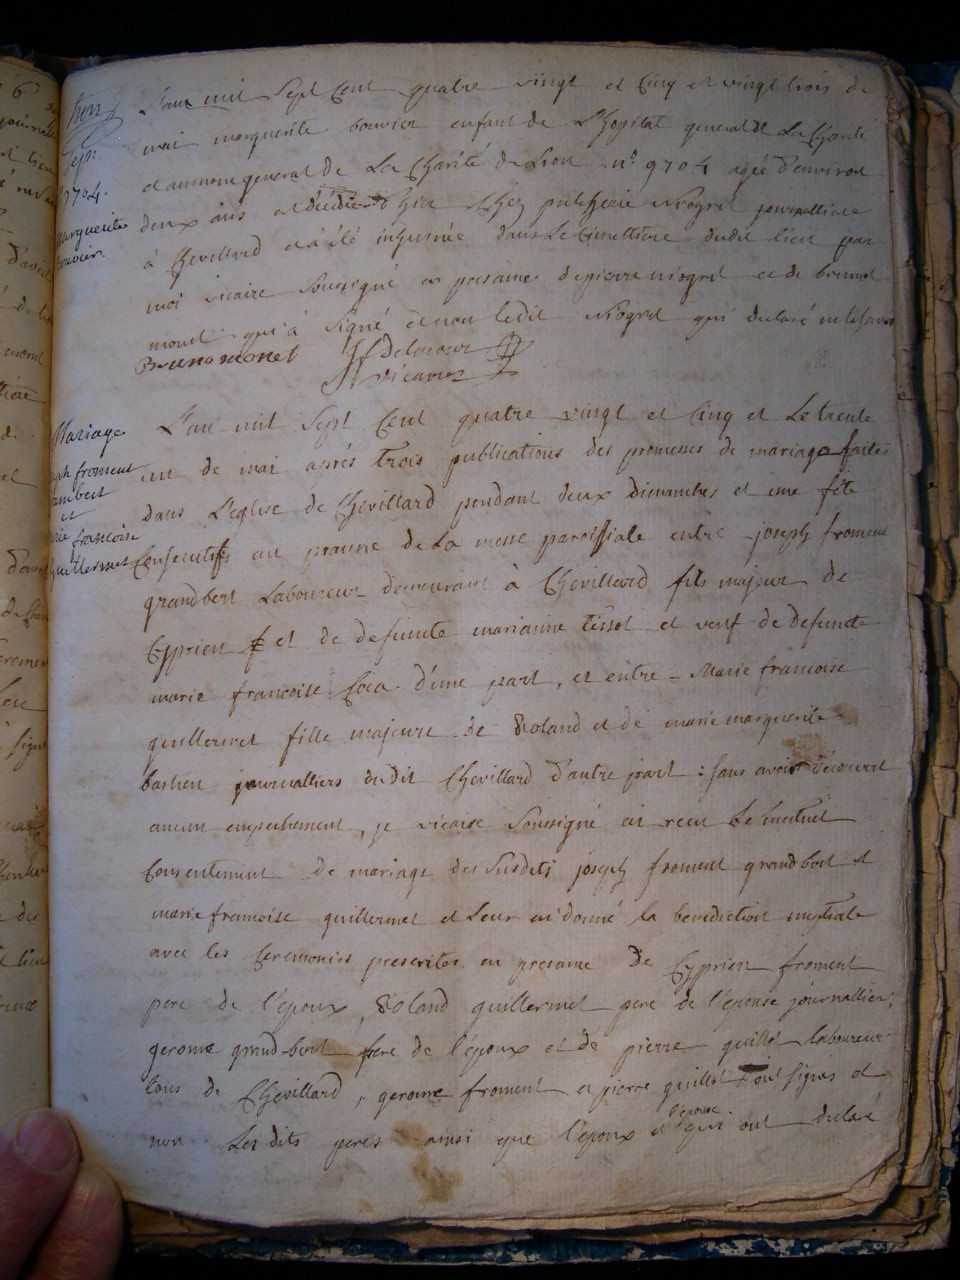 L'an mil sept cent quatre vingt et cinq et vingt trois de
mai marguerite bouvier enfant de L'hopital general de La Charité
et aumone general de La Charité de Lion n° 9704 agée d'environ
deux ans est décédée hier chez niogret journalliere
à Chevillard et a été inhumée dans le Cimettiere dudit lieu par
moi vicaire soussigné en presance de pierre niogret et de brunot
monet qui a signé et non ledit niogret qui declaré ne le savoir
Bruno monet Delacour
vicaire
9704.
marguerite
bouvier.
Mariage
froment
et
francoise
guillermet
L'an mil sept cent quatre vingt et cinq et le trente
un de mai aprés trois publications des promesses de mariage faites
dans L'eglise de Chevillard pendant deux dimanches et une fête
Consecutifs au praune de La messe paroissiale entre joseph froment
grandbert Laboureur demeurant à Chevillard fils majeur de
Cyprien f et de defuncte marianne tissot et veuf de defuncte
marie francoise Coca d'une part, et entre Marie francoise
guillermet fille majeure de Roland et de marie marguerite
bastien journalliers dudit Chevillard d'autre part : sans avoir découvert
aucun empechement, je vicaire soussigné ai recu le mutuel
Consentement de mariage des susdits joseph froment grandbert et
marie francoise guillermet et leur ai donné la benediction nuptiale
avec les Ceremonies prescrites en presance de Cyprien froment
pere de l'époux, Roland guillermet pere de l'épouse journallier;
gerome grandbert frere de l'époux et de pierre guillot laboureur
tous de Chevillard, gerome froment et pierre guillot ont signes et
non Les dits peres ainsi que l'époux et l'épouse qui ont declaré